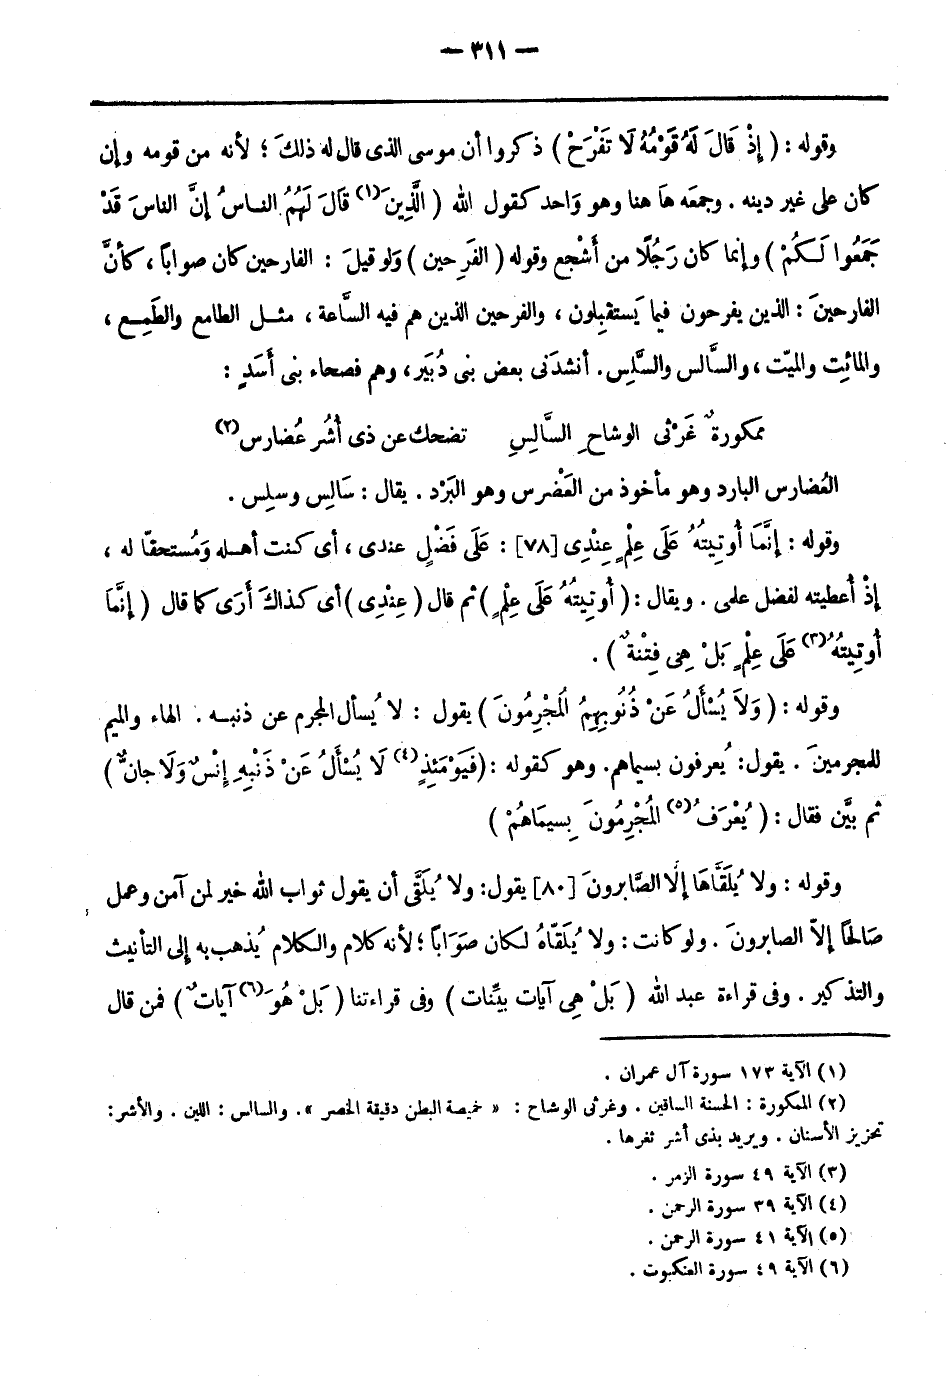 — ٣١١ —
وقوله : ( إِذْ قَالَ لَهُ قَوْمُهُ لَا تَفْرَحْ ) ذكروا أن موسى الذى قال له ذلكَ ؛ لأنه من قومه وإن
كان على غير دينه . وجمعَه هَا هنا وهو وَاحد كقول الله ( الَّذِينَ(١) قَالَ لَهُمُ الناسُ إنَّ الناسَ قَدْ
جَمَعُوا لَكُمْ ) وإنما كان رَجُلًا من أَشْجع وقوله ( الفَرِحين ) وَلو قيلَ : الفارحين كان صواباً ، كأنَّ
الفارحينَ : الذين يفرحون فيما يَستقبِلون ، والفرحين الذين هم فيه السَّاعة ، مثل الطامع والطَمِع ،
والمائِت والميّت ، والسَّالس والسَّلِس . أنشدَنى بعض بنى دُبَير ، وهم فصحاء بنى أَسَدٍ :
ممكورةٌ غَرْثى الوشاحِ السَّالِسِ تضحك عن ذى أشُر عُضارس(٢)
العُضارس البارد وهو مأخوذ من العَضْرس وهو البَرْد . يقال : سَالِس وسلِس .
وقوله : إنَّمَا أُوتِيتُهُ عَلَى عِلْمٍ عِنْدِى [٧٨] : عَلَى فَضْلٍ عندى ، أى كنت أهله وَمُستحقّا له ،
إذْ أُعطيته لفضل علمى . ويقال : ( أُوتِيتُهُ عَلَى عِلْمٍ ) ثم قال ( عِنْدِى ) أى كذاكَ أَرَى كما قال ( إنَّمَا
أُوتِيتُهُ(٣) عَلَى عِلْمٍ بَلْ هِىَ فِتْنَةٌ ) .
وقوله : ( وَلاَ يُسْأَلُ عَنْ ذُنُوبِهِمُ المُجْرِمُونَ ) يقول : لا يُسأل المجرم عن ذنبه . الهاء والميم
للمجرمينَ . يقول : يُعرفون بسيماهم . وهو كقوله : ( فَيَوْمَئِذٍ(٤) لَا يُسْأَلُ عَنْ ذَنْبِهِ إِنْسٌ وَلَا جانٌّ )
ثم بيَّن فقال : ( يُعْرَفُ(٥) المُجْرِمُونَ بِسيمَاهُمْ )
وقوله : ولا يُلَقَّاهَا إلَّا الصَّابرونَ [٨٠] يقول : ولا يُلَقَّى أن يقول ثواب الله خير لمن آمن وعمل
صَالحًا إلاّ الصابرونَ . ولو كانت : ولا يُلَقّاهُ لكان صَوَاباً ؛ لأنه كلام والكلام يُذهب به إلى التأنيث
والتذكير . وفى قراءة عبد الله ( بَلْ هِىَ آيات بيِّنات ) وفى قراءتنا ( بَلْ هُوَ(٦) آيَاتٌ ) فمن قال
(١) الآية ١٧٣ سورة آل عمران .
(٢) الممكورة : الحسنة الساقين . وغرثى الوشاح : « خميصة البطن دقيقة الخصر » . والسالس : اللين . والأشر :
تحزيز الأسنان . ويريد بذى أشر ثغرها .
(٣) الآية ٤٩ سورة الزمر .
(٤) الآية ٣٩ سورة الرحمن .
(٥) الآية ٤١ سورة الرحمن .
(٦) الآية ٤٩ سورة العنكبوت .